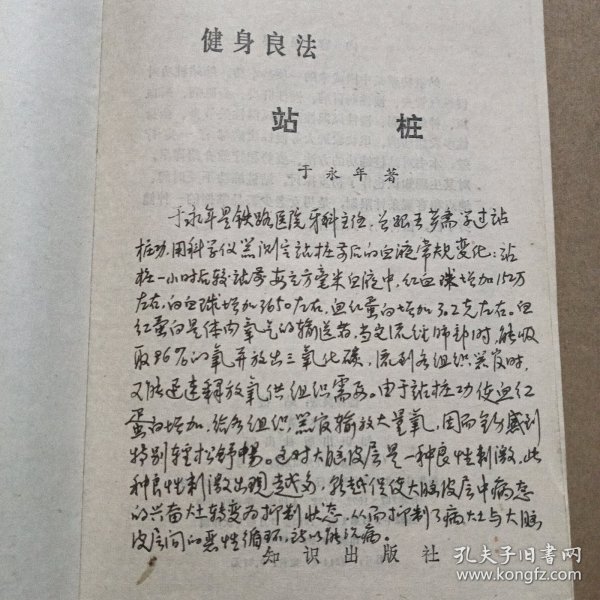 健身良法
站 桩
于永年著
于永年是铁路医院牙科主任，曾跟王芗斋学过站
桩功，用科学仪器测定站桩前后的血液常规变化：站
桩一小时后较站前每立方毫米血液中，红血球增加152万
左右，白血球增加3650左右，血红蛋白增加3.2克左右。血
红蛋白是体内氧气的输送者，当交流经肺部时，能吸
取96%的氧并放出二氧化碳，流到各组织器官时，
又能迅速释放氧供组织需要。由于站桩功使血红
蛋白增加，给各组织器官输放大量氧，因而全身感到
特别轻松舒畅。这时大脑皮层是一种良性刺激，此
种良性刺激出现越多，能越促使大脑皮层中病态
的兴奋灶转变为抑制状态，从而抑制了病灶与大脑
皮层间的恶性循环，所以能治病。
知识出版社
孔夫子旧书网
www.kongfz.com